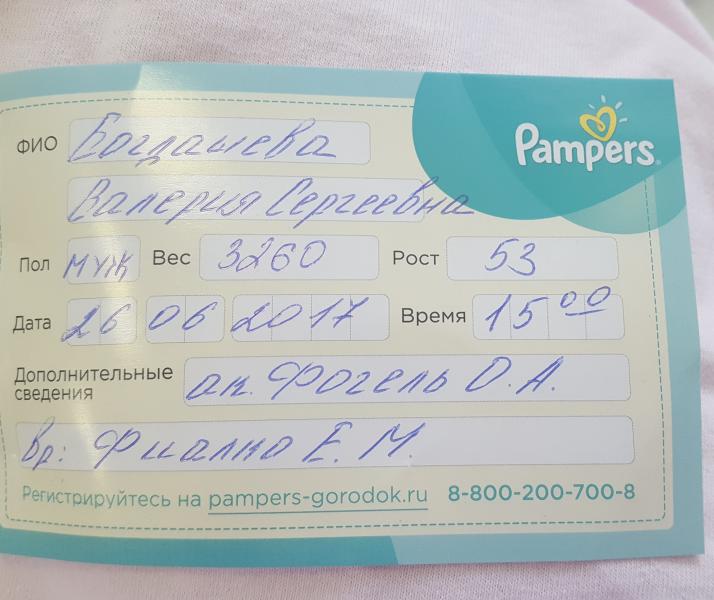 Pampers
ФИО Богдашева
Валерия Сергеевна
Пол муж Вес 3260 Рост 53
Дата 26 06 2017 Время 15 00
Дополнительные сведения ак. Фогель О.А.
Вр: Фиалко Е.М.
Регистрируйтесь на pampers-gorodok.ru 8-800-200-700-8